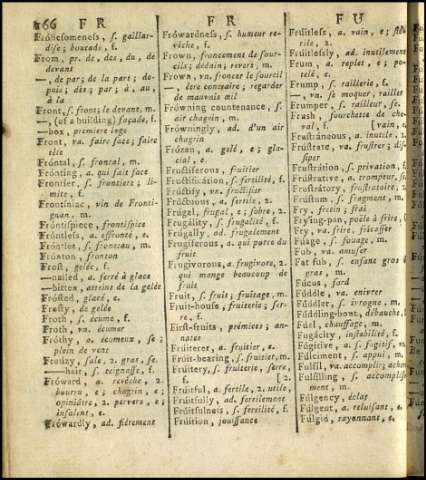 166 F R
F R
F U
Frólicsomeness, s. gaillar-
dise; boutade, f.
From, pr. de, des, du, de
devant
—, de par; de la part; de-
puis; dès; par; à, au,
à la
Front, s. front; le devant, m.
— (of a building) façade, f.
—box, premiere loge
Front, va. faire face; faire
tête
Fróntal, s. frontal, m.
Frónting, a. qui fait face
Fróntier, s. frontiere; li-
mite, f.
Frontiniac, vin de Fronti-
gnan, m.
Fróntispiece, frontispice
Fróntless, a. effronté, m.
Fróntlet, s. fronteau, m.
Frónton, fronton
Frost, gelée, f.
—nailed, a. ferré à glace
—bitten, atteint de la gelée
Frósted, glacé, e.
Frósty, de gelée
Froth, s. écume, f.
Froth, va. écumer
Fróthy, a. écumeux, se;
plein de vent
Froúzy, sale, 2. gras, se.
—hair, s. teignasse, f.
Fróward, a. revêche, 2.
bourru, e; chagrin, e;
opiniâtre, 2. pervers, e;
insolent, e.
Frówardly, ad. fiérement
Frówardness, s. humeur re-
vêche, f.
Frown, froncement de sour-
cils; dédain; revers, m.
Frown, va. froncer le sourcil
—, être contraire; regarder
de mauvais œil
Frówning countenance, s.
air chagrin, m.
Frówningly, ad. d'un air
chagrin
Frózen, a. gelé, e; gla-
cial, e.
Fructíferous, fruitier
Fructificátion, s. fertilité, f.
Frúctify, va. fructifier
Frúctuous, a. fertile, 2.
Frúgal, frugal, e; sobre, 2.
Frugálity, s. frugalité, f.
Frúgally, ad. frugalement
Frugíferous, a. qui porte du
fruit
Frugívorous, a. frugivore, 2.
qui mange beaucoup de
fruit
Fruit, s. fruit; fruitage, m.
Fruit-house, fruiterie; ser-
re, f.
First-fruits, prémices; an-
nates
Frúiterer, a. fruitier, e.
Fruit-bearing, s. fruitier, m.
Frúitery, s. fruiterie, serre,
f. [2.
Frúitful, a. fertile, 2. utile,
Frúitfully, ad. fertilement
Frúitfulness, s. fertilité, f.
Fruítion, jouissance
Frúitless, a. vain, e;
rile, 2.
Frúitlessly, ad. inutilement
Frum, a. replet, e; po-
telé, e.
Frump, s. raillerie, f.
—, va. se moquer, railler
Frumper, s. railleur, se.
Frush, fourchette de che-
val, f. [vain, e.
Frustráneous, a. inutile, 2.
Frústrate, va. frustrer; dis-
siper
Frustrátion, s. privation, f.
Frústrative, a. trompeur,
Frústratory, frustratoire, 2.
Frústum, s. fragment, m.
Fry, fretin; frai
Frying-pan, poêle à frire, f.
Fry, va. frire, fricasser
Fúage, s. fouage, m.
Fub, va. amuser
Fat fub, s. enfant gros &
gras, m.
Fúcus, fard
Fúddle, va. enivrer
Fúddler, s. ivrogne, m.
Fúddling-bout, débauche, f.
Fúel, chauffage, m.
Fugácity, instabilité, f.
Fúgitive, a. & s. fugitif,
Fúlciment, s. appui, m.
Fulfíl, va. accomplir;
Fulfílling, s. accomplisse-
ment, m.
Fúlgency, éclat
Fúlgent, a. reluisant, e.
Fúlgid, rayonnant, e.